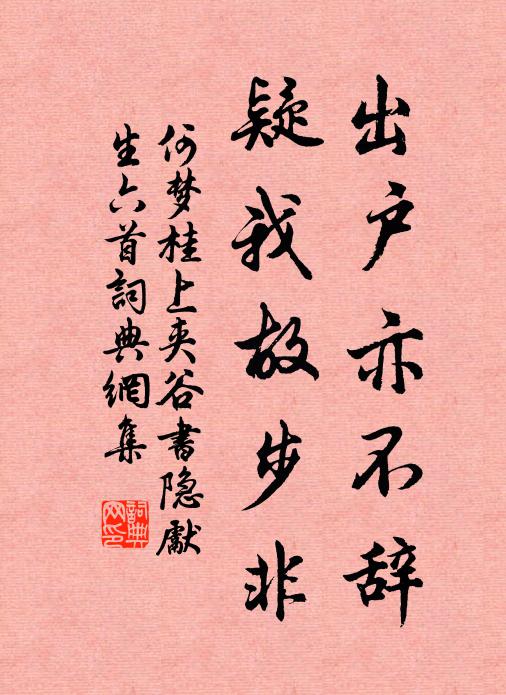 出户亦不辞
疑我故步非
何梦桂上夹谷书隐献
生六首詞典網集
詞典
网印